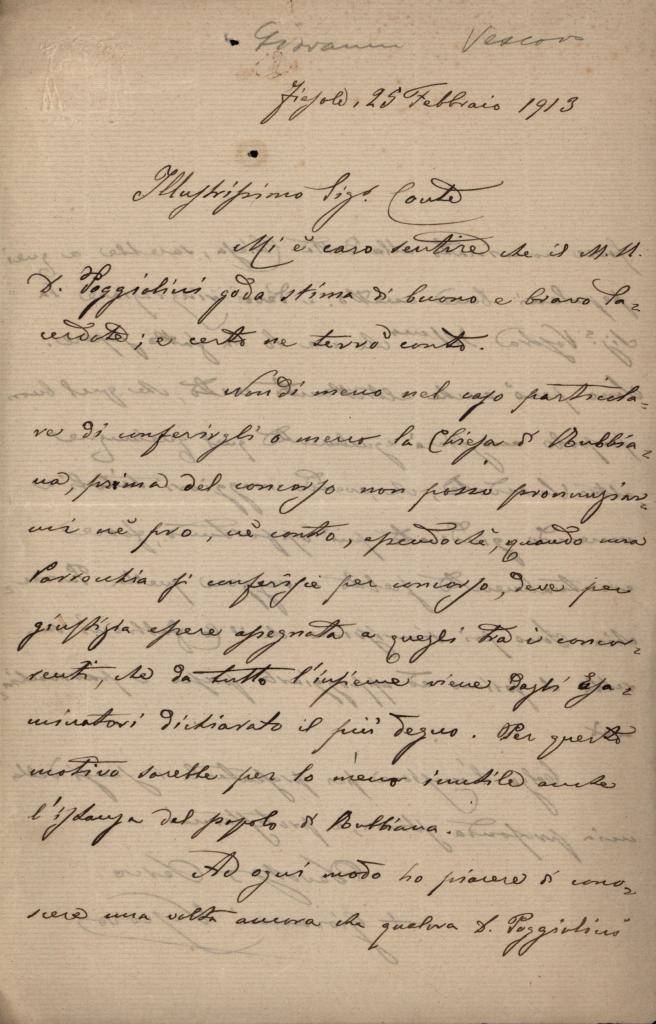 Giovanni Vescovo
Fiesole, 25 Febbraio 1913
Illustrissimo Sigr. Conte
Mi è caro sentire che il M. R.
D. Poggiolini goda stima di buono e bravo Sa=
cerdote; e certo ne terrò conto.
Nondimeno nel caso particola=
re di conferirgli o meno la Chiesa di Rubbia=
na, prima del concorso non posso pronunziar=
mi nè pro, nè contro, essendochè, quando una
Parrocchia si conferisce per concorso, deve per
giustizia essere assegnata a quegli tra i concor=
renti, che da tutto l'insieme viene dagli Esa=
minatori dichiarato il più degno. Per questo
motivo sarebbe per lo meno inutile anche
l'istanza del popolo di Rubbiana.
Ad ogni modo ho piacere di cono=
scere una volta ancora che qualora D. Poggiolini